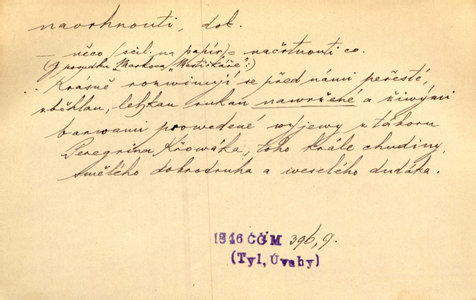 navrhnouti, dok.
— něco (scil. na papír) = načrtnouti co.
(Z posudku Markova „Mastičkáře“:)
Krásně rozwinují se před námi pěřesté,
zběhlau, lehkau rukau nawržené a žiwými
barwami prowedené wýjewy z táboru
Peregrina Křowáka, toho krále chudiny,
smělého dobrodruha a weselého dudáka.
1846 ČČM 396,9.
(Tyl, Úvahy)